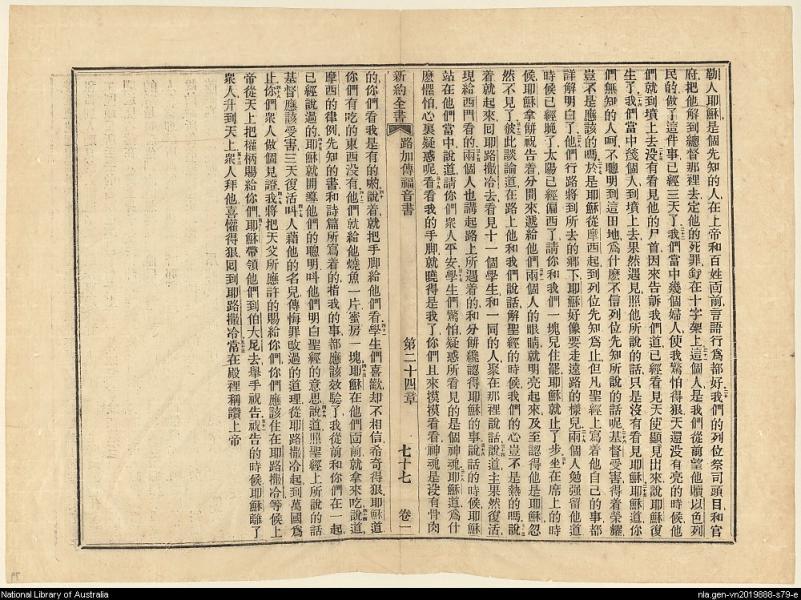 勒人耶穌是個先知的人在上帝和百姓面前言語行爲都好我們的列位祭司頭目和官
府把他解到總督那裡去定他的死罪釘在十字架上這個人是我們從前望他贖以色列
民的做了這件事已經三天了我們當中幾個婦人使我驚怕得狠天還没有亮的時候他
們就到墳上去没有看見他的尸首因來告訴我們道已經看見天使顯見出來說耶穌復
生了我們當中幾個人到墳上去果然遇見照他所說的話只是没有看見耶穌耶穌道你
們無知的人呵不聰明到這田地爲什麽不信列位先知所說的話呢基督受害得着榮耀
豈不是應該的嗎於是耶穌從摩西起到列位先知爲止但凡聖經上寫着他自己的事都
詳解明白了他們行路將到所去的鄉下耶穌好像要走遠路的樣兒兩個人勉强留他道
時候已經晚了太陽已經偏西了請你和我們一塊兒住罷耶穌就止了步坐在席上的時
候耶穌拿餅祝告着分開來遞給他們兩個人的眼睛就明亮起來及至認得他是耶穌忽
然不見了彼此談論道在路上他和我們說話解聖經的時候我們的心豈不是熱的嗎說
着就起來回耶路撒冷去看見十一個學生和一同的人聚在那裡說話說道主果然復活
現給西門看的兩個人也講起路上所遇着的和分餅纔認得耶穌的事說話的時候耶穌
站在他們當中說道請你們衆人平安學生們驚怕疑惑所看見的是個神魂耶穌道爲什
麽懼怕心裏疑惑呢看看我的手脚就曉得是我了你們且來摸摸看看神魂是没有骨肉
新約全書 路加傳福音書 第二十四章 七十七 卷一
的你們看我是有的喲說着就把手脚給他們看學生們喜歡却不相信希奇得狠耶穌道
你們有吃的東西没有他們就給他燒魚一片蜜房一塊耶穌在他們面前就拿來吃說道
摩西的律例先知的書和詩篇所寫着的指我的事都應該效驗了我從前和你們在一起
已經說過的耶穌就開導他們的聰明呌他們明白聖經的意思說道照聖經上所說的話
基督應該受害三天復活呌人藉他的名兒傳悔罪改過的道理從耶路撒冷起到萬國爲
止你們衆人做個見證我將把天父所應許的賜給你們你們應該住在耶路撒冷等候上
帝從天上把權柄賜給你們耶穌帶領他們到伯大尼去舉手祝告祝告的時候耶穌離了
衆人升到天上衆人拜他喜歡得狠回到耶路撒冷當在殿裡稱讚上帝
National Library of Australia
nla.gen-vn2019888-s79-e